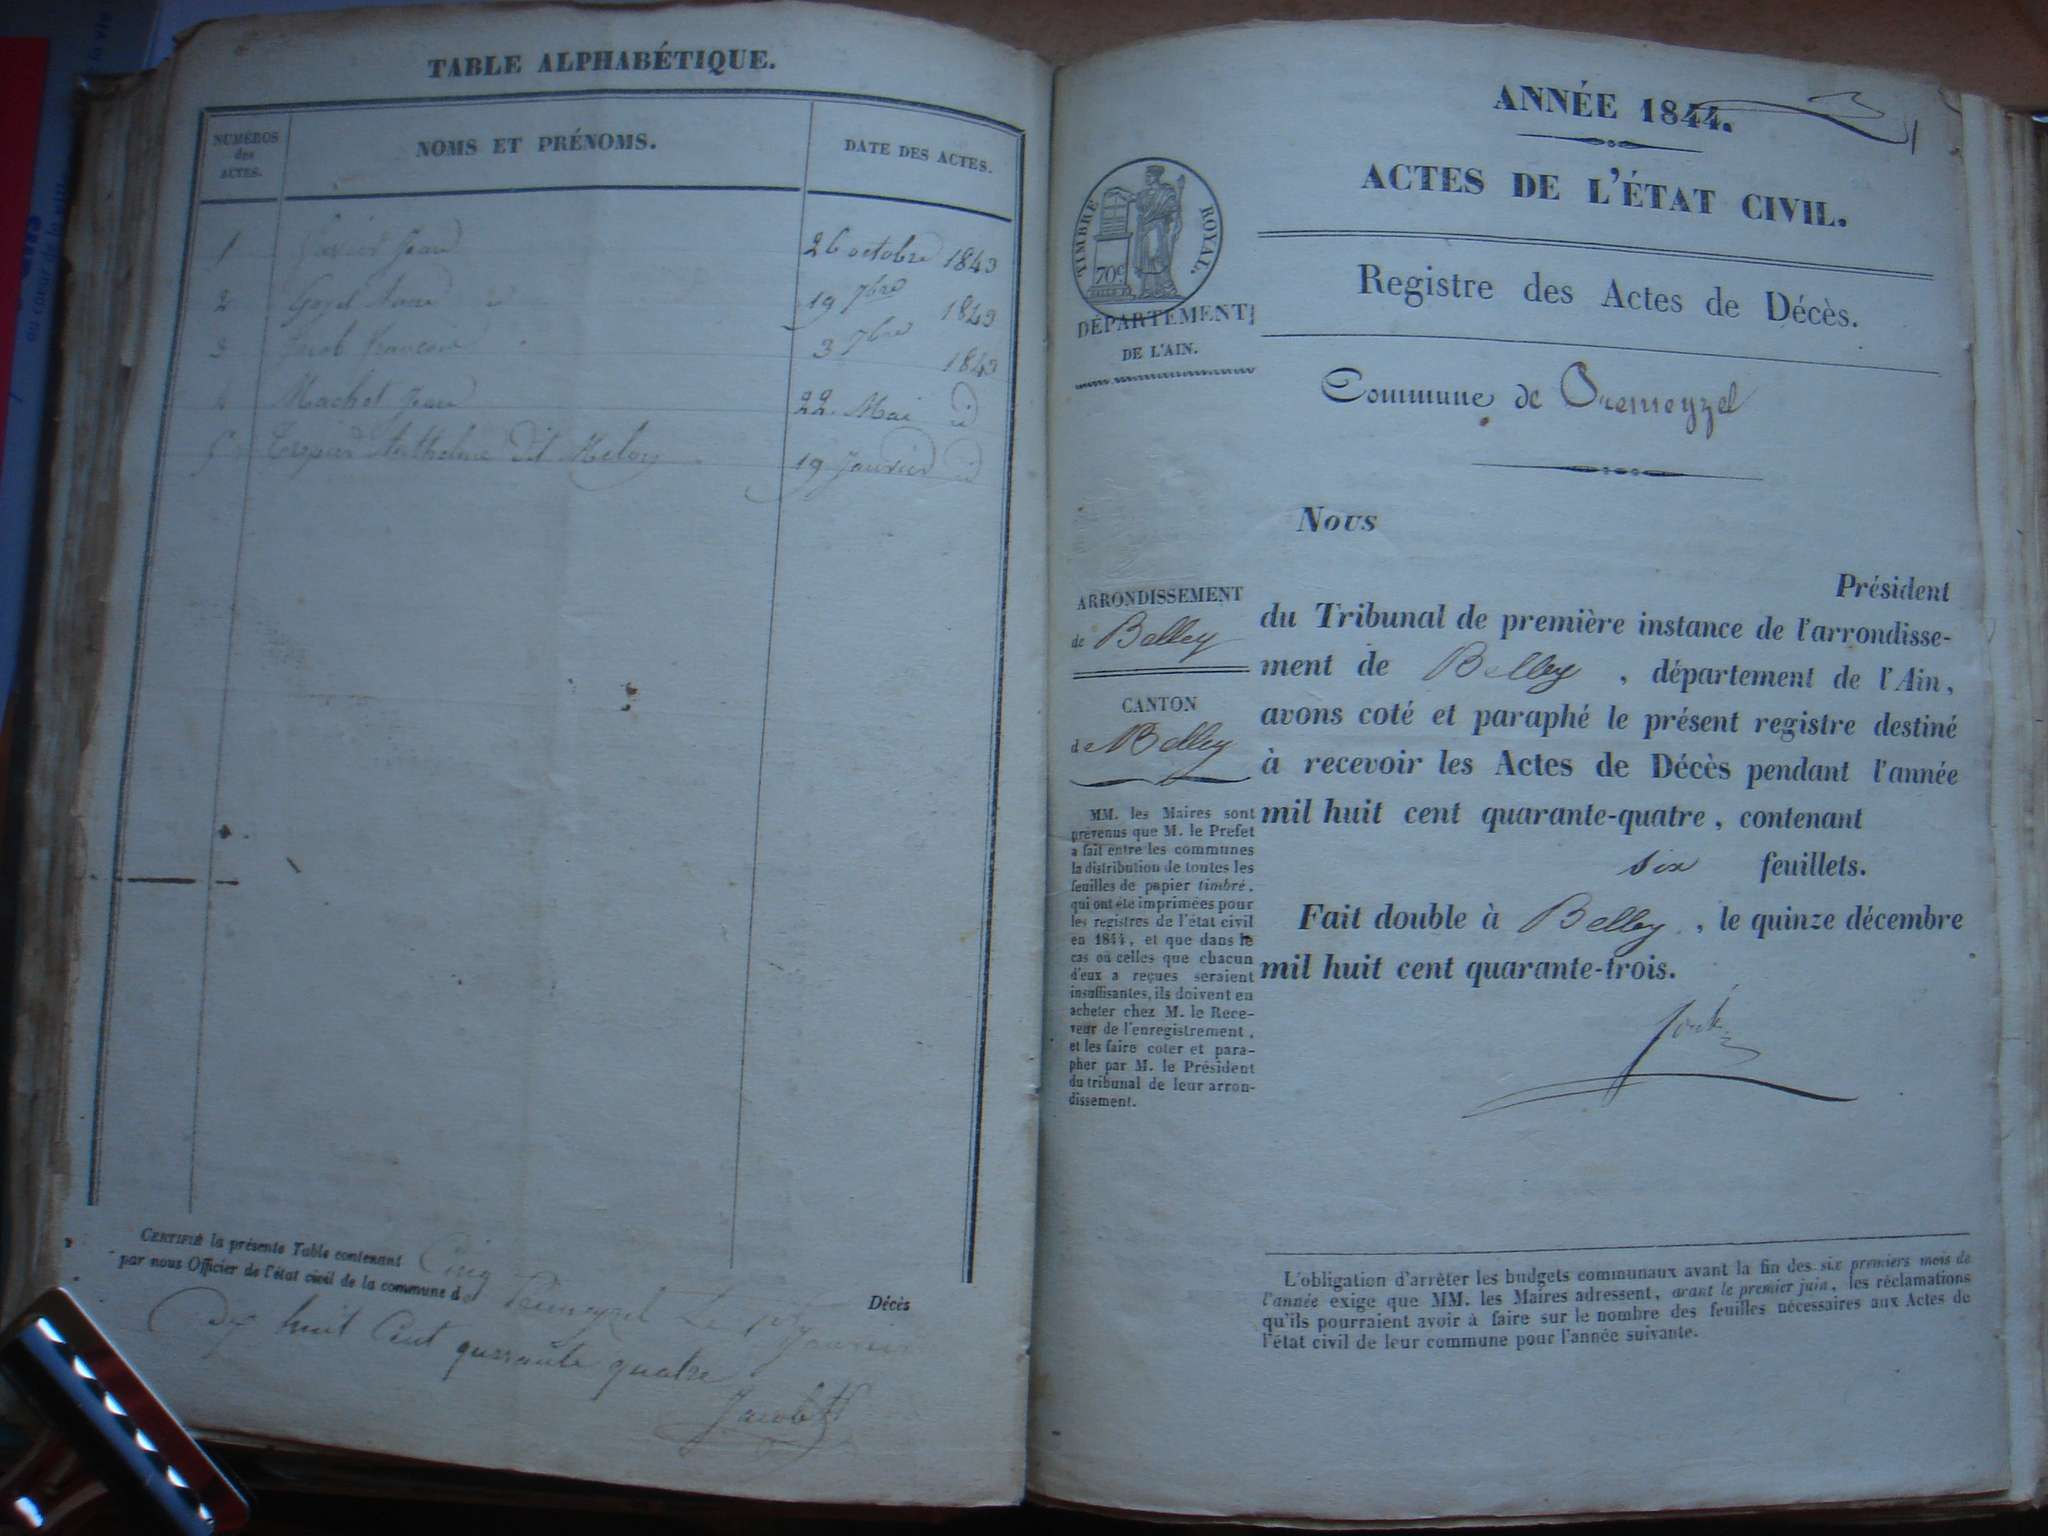 TABLE ALPHABÉTIQUE.
NUMÉROS
des
ACTES.
NOMS ET PRÉNOMS.
DATE DES ACTES.
1 Jean 26 octobre 1843
2 19 7bre 1843
3 Jacob François 3 7bre 1843
4 Machet Jean 22 Mai d
5 Anthelme dit 19 Janvier d
CERTIFIÉ la présente Table contenant Cinq Décès
par nous Officier de l'état civil de la commune de le 1er Janvier
huit Cent quarante quatre
ANNÉE 1844.
1
ACTES DE L'ÉTAT CIVIL.
Registre des Actes de Décès.
TIMBRE ROYAL.
70c
DÉPARTEMENT
DE L'AIN.
Commune de
Nous
Président
du Tribunal de première instance de l'arrondisse-
ment de Belley , département de l'Ain,
avons coté et paraphé le présent registre destiné
à recevoir les Actes de Décès pendant l'année
mil huit cent quarante-quatre, contenant
six feuillets.
Fait double à Belley , le quinze décembre
mil huit cent quarante-trois.
ARRONDISSEMENT
de Belley
CANTON
de Belley
MM. les Maires sont
prévenus que M. le Prefet
a fait entre les communes
la distribution de toutes les
feuilles de papier timbré,
qui ont été imprimées pour
les registres de l'état civil
en 1844, et que dans le
cas où celles que chacun
d'eux a reçues seraient
insuffisantes, ils doivent en
acheter chez M. le Rece-
veur de l'enregistrement,
et les faire coter et para-
pher par M. le Président
du tribunal de leur arron-
dissement.
L'obligation d'arrêter les budgets communaux avant la fin des six premiers mois de
l'année exige que MM. les Maires adressent, avant le premier juin, les réclamations
qu'ils pourraient avoir à faire sur le nombre des feuilles nécessaires aux Actes de
l'état civil de leur commune pour l'année suivante.